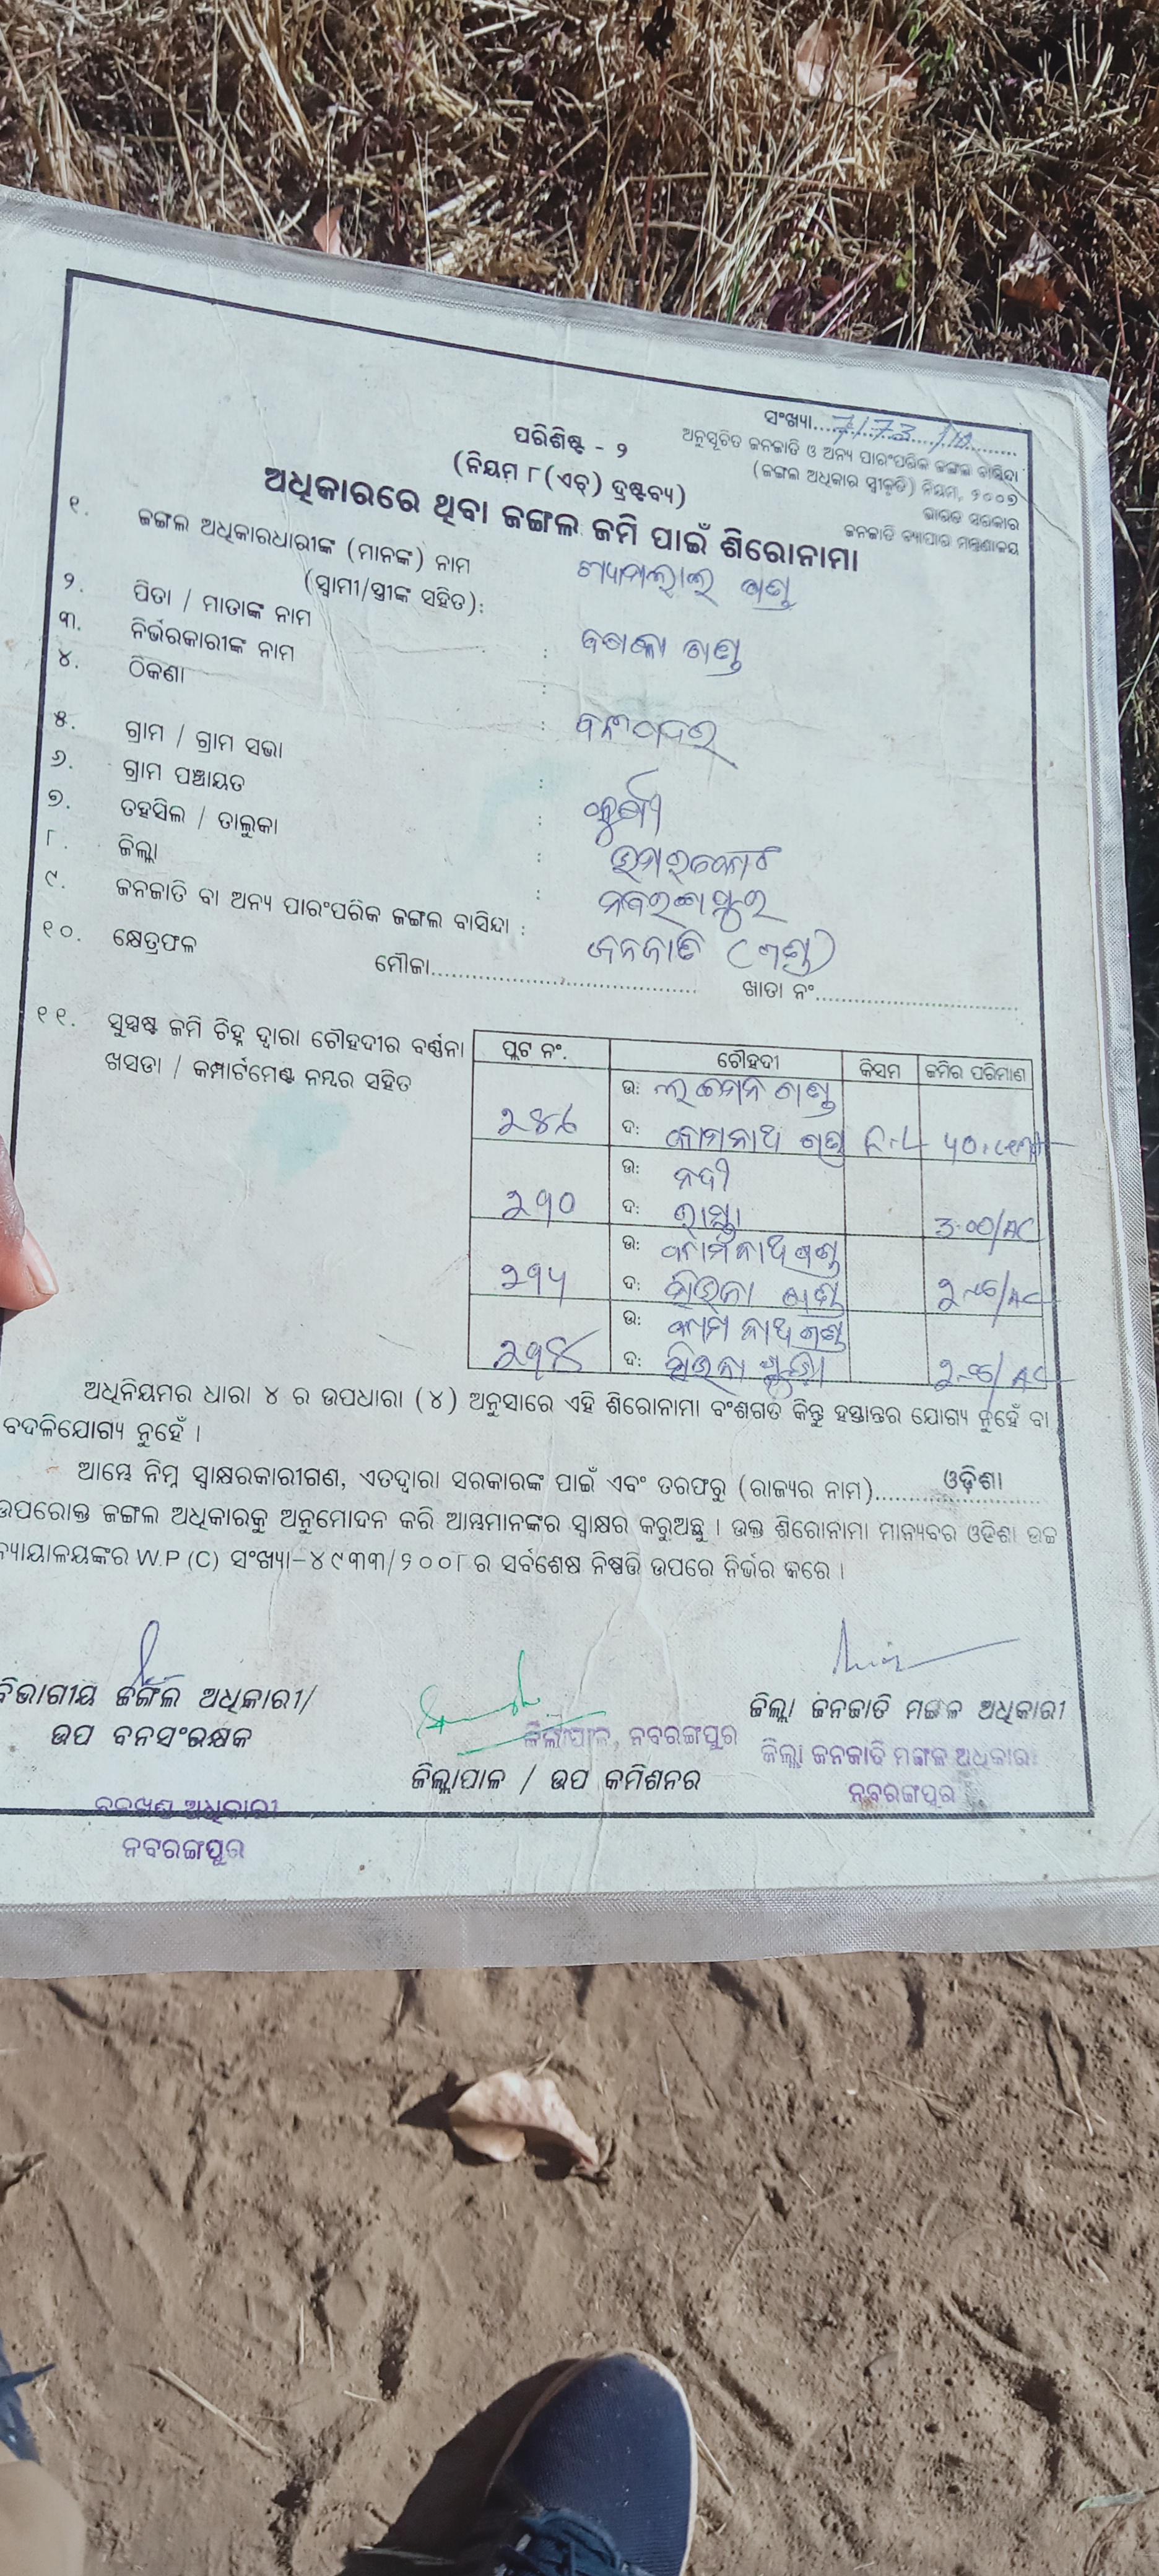 ସଂଖ୍ୟା.....7/73
ଅନୁସୂଚିତ ଜନଜାତି ଓ ଅନ୍ୟ ପାରଂପରିକ ଜଙ୍ଗଲ ବାସିନ୍ଦା
(ଜଙ୍ଗଲ ଅଧିକାର ସ୍ୱୀକୃତି) ନିୟମ, ୨୦୦୭
ଭାରତ ସରକାର
ଜନଜାତି ବ୍ୟାପାର ମନ୍ତ୍ରଣାଳୟ
ପରିଶିଷ୍ଟ - ୨
(ନିୟମ ୮(ଏଚ୍) ଦ୍ରଷ୍ଟବ୍ୟ)
ଅଧିକାରରେ ଥିବା ଜଙ୍ଗଲ ଜମି ପାଇଁ ଶିରୋନାମା
୧. ଜଙ୍ଗଲ ଅଧିକାରଧାରୀଙ୍କ (ମାନଙ୍କ) ନାମ
(ସ୍ୱାମୀ/ସ୍ତ୍ରୀଙ୍କ ସହିତ):
୨. ପିତା / ମାତାଙ୍କ ନାମ :
୩. ନିର୍ଭରକାରୀଙ୍କ ନାମ :
୪. ଠିକଣା :
୫. ଗ୍ରାମ / ଗ୍ରାମ ସଭା :
୬. ଗ୍ରାମ ପଞ୍ଚାୟତ :
୭. ତହସିଲ / ତାଲୁକା : ଉମରକୋଟ
୮. ଜିଲ୍ଲା : ନବରଙ୍ଗପୁର
୯. ଜନଜାତି ବା ଅନ୍ୟ ପାରଂପରିକ ଜଙ୍ଗଲ ବାସିନ୍ଦା : ଜନଜାତି (ଗଣ୍ଡ)
୧୦. କ୍ଷେତ୍ରଫଳ ମୌଜା............ ଖାତା ନଂ............
୧୧. ସୁସ୍ପଷ୍ଟ ଜମି ଚିହ୍ନ ଦ୍ୱାରା ଚୌହଦୀର ବର୍ଣ୍ଣନା
ଖସଡା / କମ୍ପାର୍ଟମେଣ୍ଟ ନମ୍ବର ସହିତ
ପ୍ଲଟ ନଂ. ଚୌହଦୀ କିସମ ଜମିର ପରିମାଣ
ଉ: ଗଣ୍ଡ
ଦ: ଗଣ୍ଡ
ଉ: ନଦୀ
୨୭୦ ଦ: ରାସ୍ତା 3.00/AC
ଉ: ଗଣ୍ଡ
୨୭୫ ଦ: ଗଣ୍ଡ
ଉ: ଗଣ୍ଡ
୨୭୪ ଦ:
ଅଧିନିୟମର ଧାରା ୪ ର ଉପଧାରା (୪) ଅନୁସାରେ ଏହି ଶିରୋନାମା ବଂଶଗତ କିନ୍ତୁ ହସ୍ତାନ୍ତର ଯୋଗ୍ୟ ନୁହେଁ ବା
ବଦଳିଯୋଗ୍ୟ ନୁହେଁ ।
ଆମ୍ଭେ ନିମ୍ନ ସ୍ୱାକ୍ଷରକାରୀଗଣ, ଏତଦ୍ଦ୍ୱାରା ସରକାରଙ୍କ ପାଇଁ ଏବଂ ତରଫରୁ (ରାଜ୍ୟର ନାମ)......ଓଡ଼ିଶା......
ଉପରୋକ୍ତ ଜଙ୍ଗଲ ଅଧିକାରକୁ ଅନୁମୋଦନ କରି ଆମ୍ଭମାନଙ୍କର ସ୍ୱାକ୍ଷର କରୁଅଛୁ । ଉକ୍ତ ଶିରୋନାମା ମାନ୍ୟବର ଓଡିଶା ଉଚ୍ଚ
ନ୍ୟାୟାଳୟଙ୍କର W.P (C) ସଂଖ୍ୟା-୪୯୩୩/୨୦୦୮ ର ସର୍ବଶେଷ ନିଷ୍ପତ୍ତି ଉପରେ ନିର୍ଭର କରେ ।
ବିଭାଗୀୟ ଜଙ୍ଗଲ ଅଧିକାରୀ/
ଉପ ବନସଂରକ୍ଷକ
ବନଖଣ୍ଡ ଅଧିକାରୀ
ନବରଙ୍ଗପୁର
ଜିଲ୍ଲାପାଳ, ନବରଙ୍ଗପୁର
ଜିଲ୍ଲାପାଳ / ଉପ କମିଶନର
ଜିଲ୍ଲା ଜନଜାତି ମଙ୍ଗଳ ଅଧିକାରୀ
ଜିଲ୍ଲା ଜନଜାତି ମଙ୍ଗଳ ଅଧିକାରୀ
ନବରଙ୍ଗପୁର